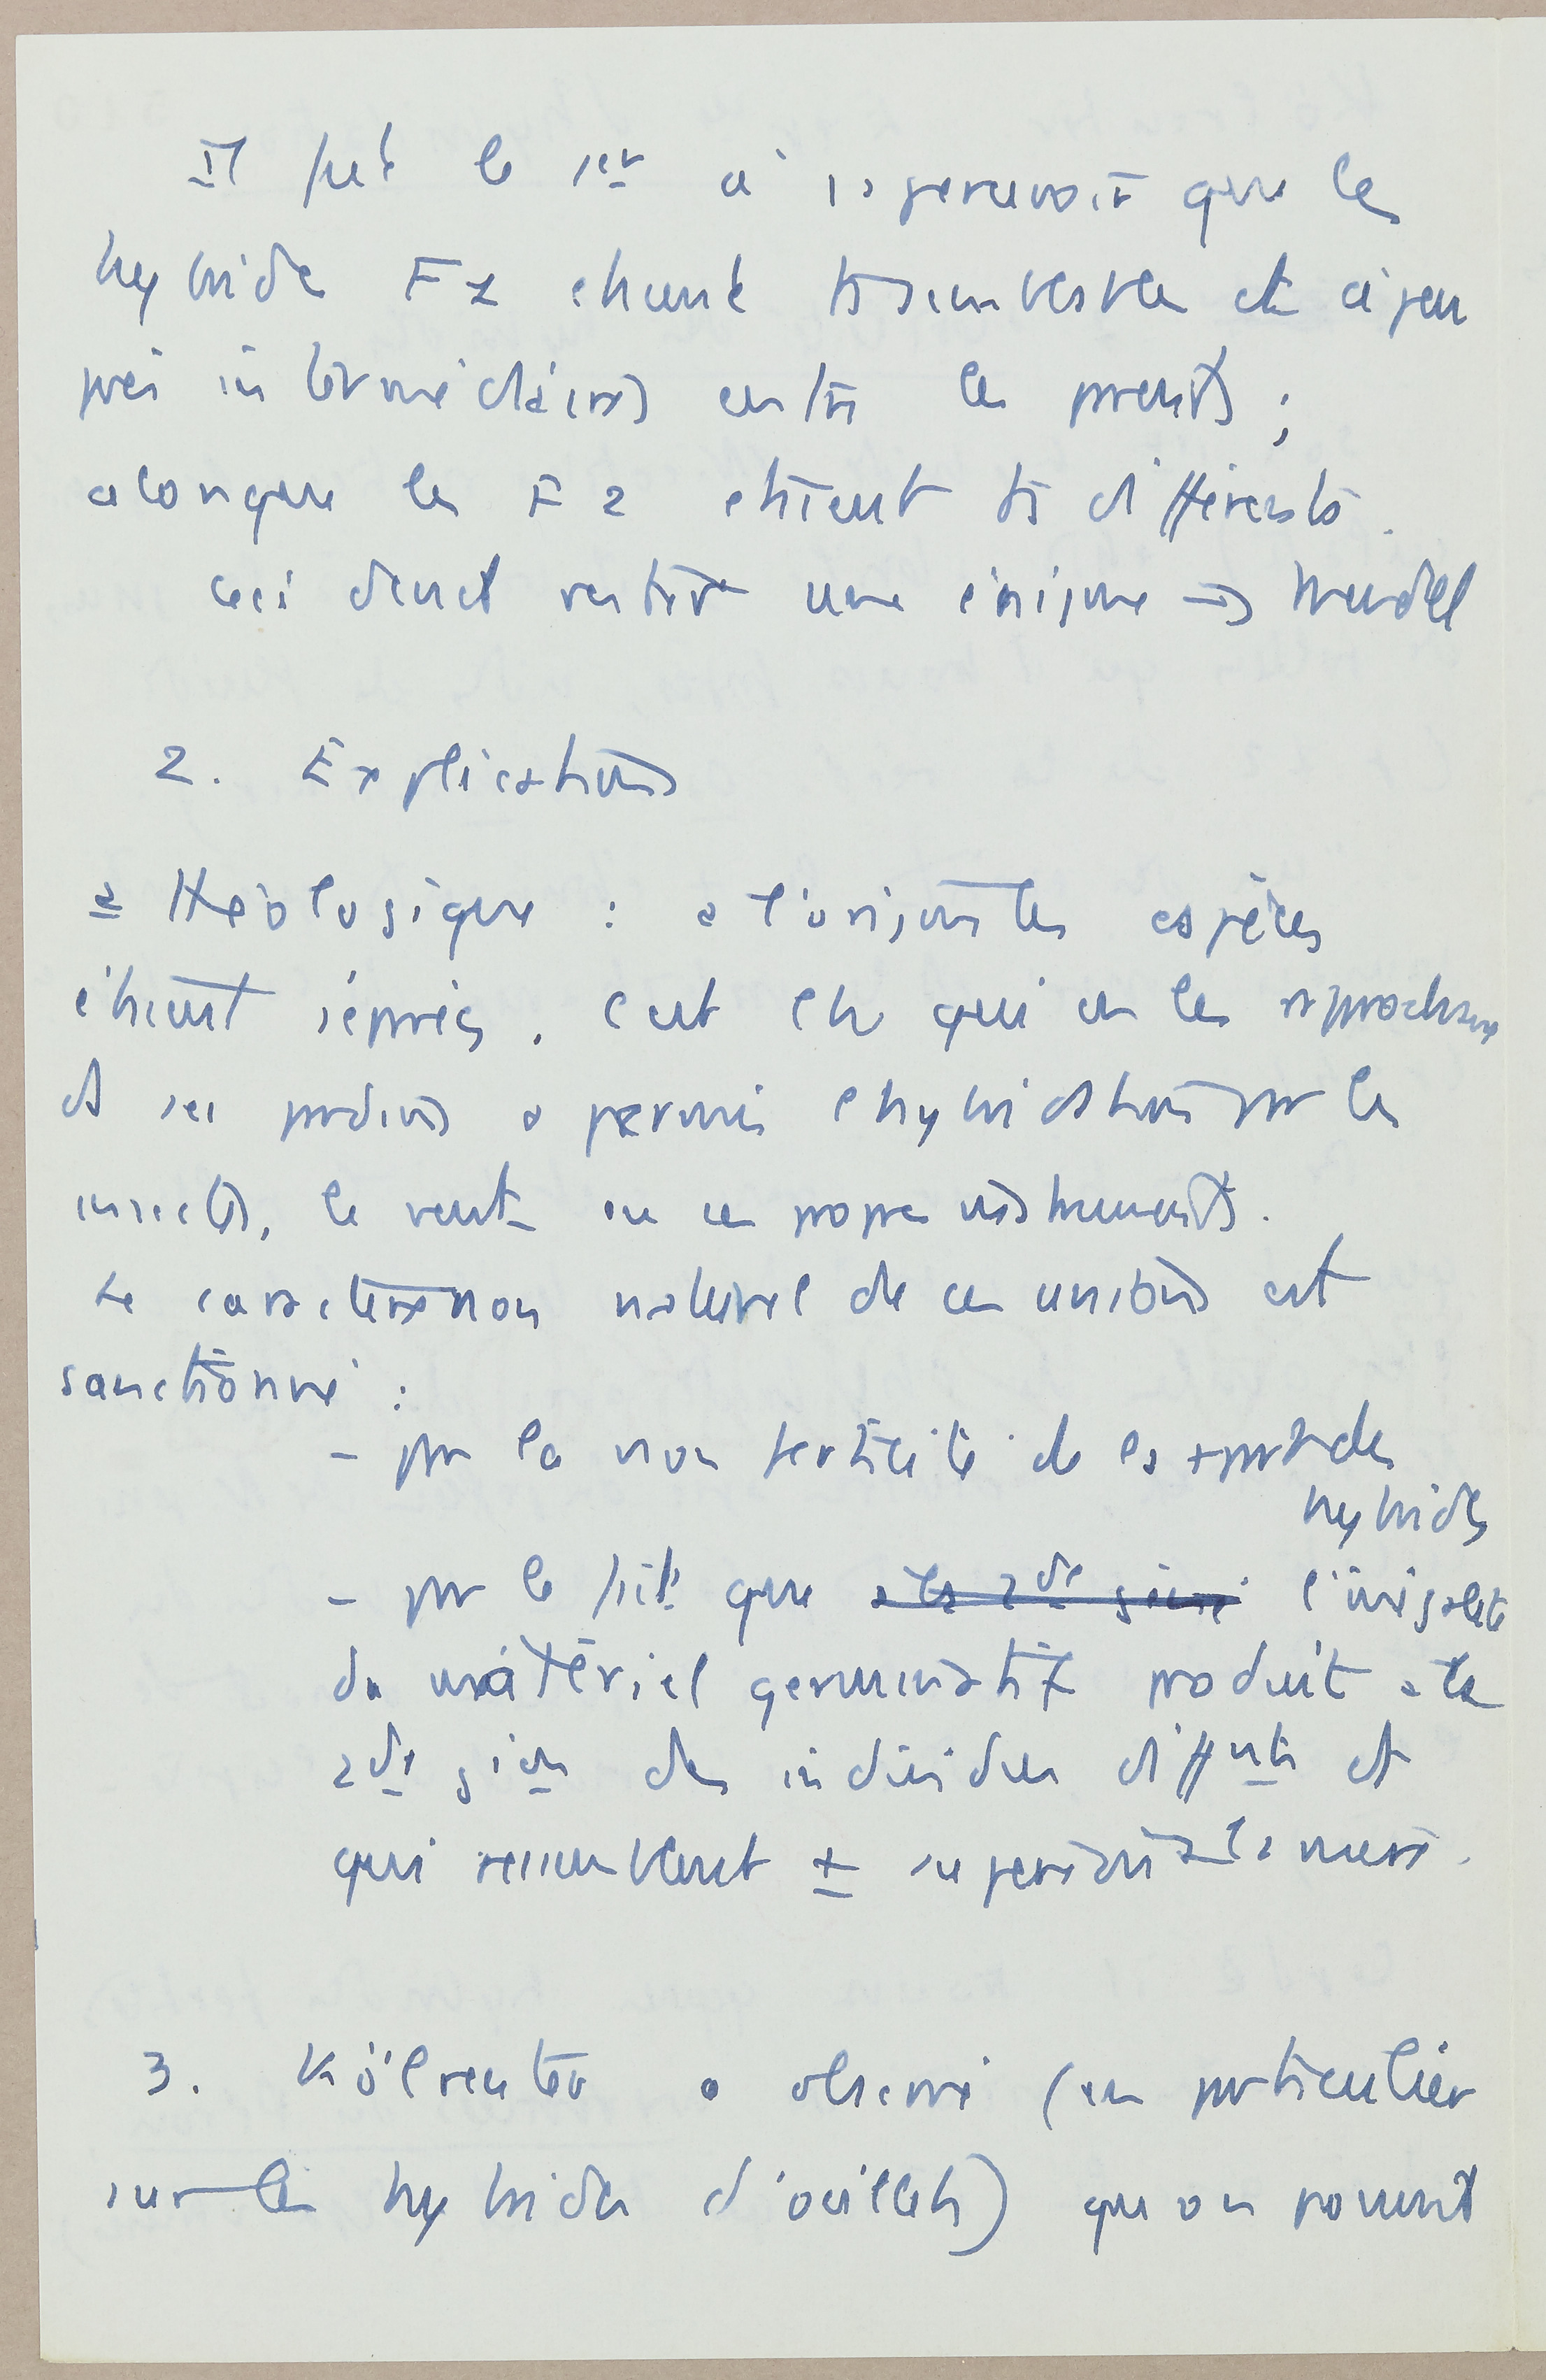 Il fut le 1er à s'apercevoir que les
hybrides F1 étaient très semblables et à peu
près intermédiaires entre les parents ;
alors que les F2 étaient très différents.
Ceci devait rester une énigme → Mendel
2. Explications
a Théologique : à l'origine les espèces
étaient séparées. C'est l'h qui en les rapprochant
et ses jardins a permis l'hybridation par les
insectes, le vent ou ses propres instruments.
Le caractère non naturel de ces unions est
sanctionné :
- par la non fertilité de la plupart des
hybrides
- par le fait que à la 2de géné l'inégalité
du matériel germinatif produit à la
2de géon des individus difffnts et
qui ressemblent ± au père ou à la mère.
3. Kölreuter a observé (en particulier
sur les hybrides d'œillets) qu'on pouvait